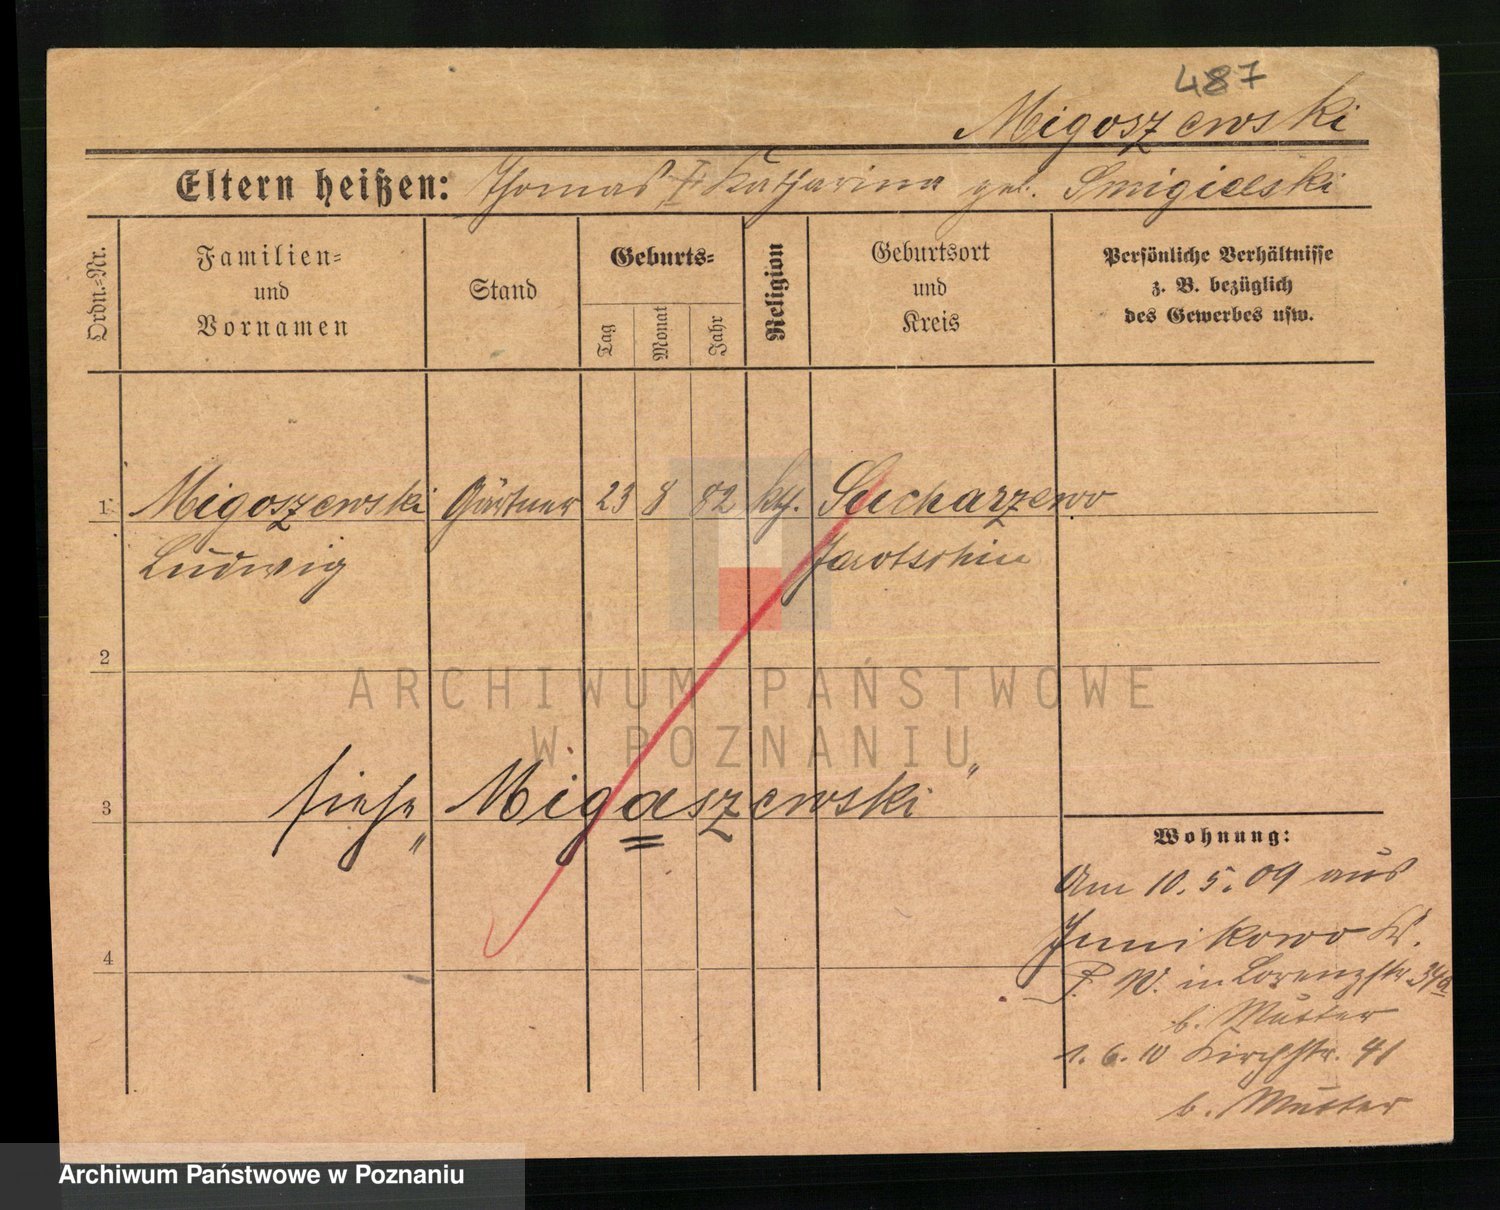 487
Migoszewski
Eltern heißen: Thomas, Katharina geb. Smigielski
Ordn.=Nr.
Familien=
und
Vornamen
Stand
Geburts=
Tag
Monat
Jahr
Religion
Geburtsort
und
Kreis
Persönliche Verhältnisse
z. B. bezüglich
des Gewerbes usw.
1 Migoszewski Gärtner 23 8 82 kth. Sucharzewo
Ludwig Jarotschin
2
ARCHIWUM PAŃSTWOWE
W POZNANIU
3 siehe „Migaszewski"
Wohnung:
Am 10. 5. 09 aus
Junikowo Kr.
4
P. W. in Lorenzstr. 34a
b. Mutter
1. 6. 10 Kirchstr. 41
b. Mutter
Archiwum Państwowe w Poznaniu